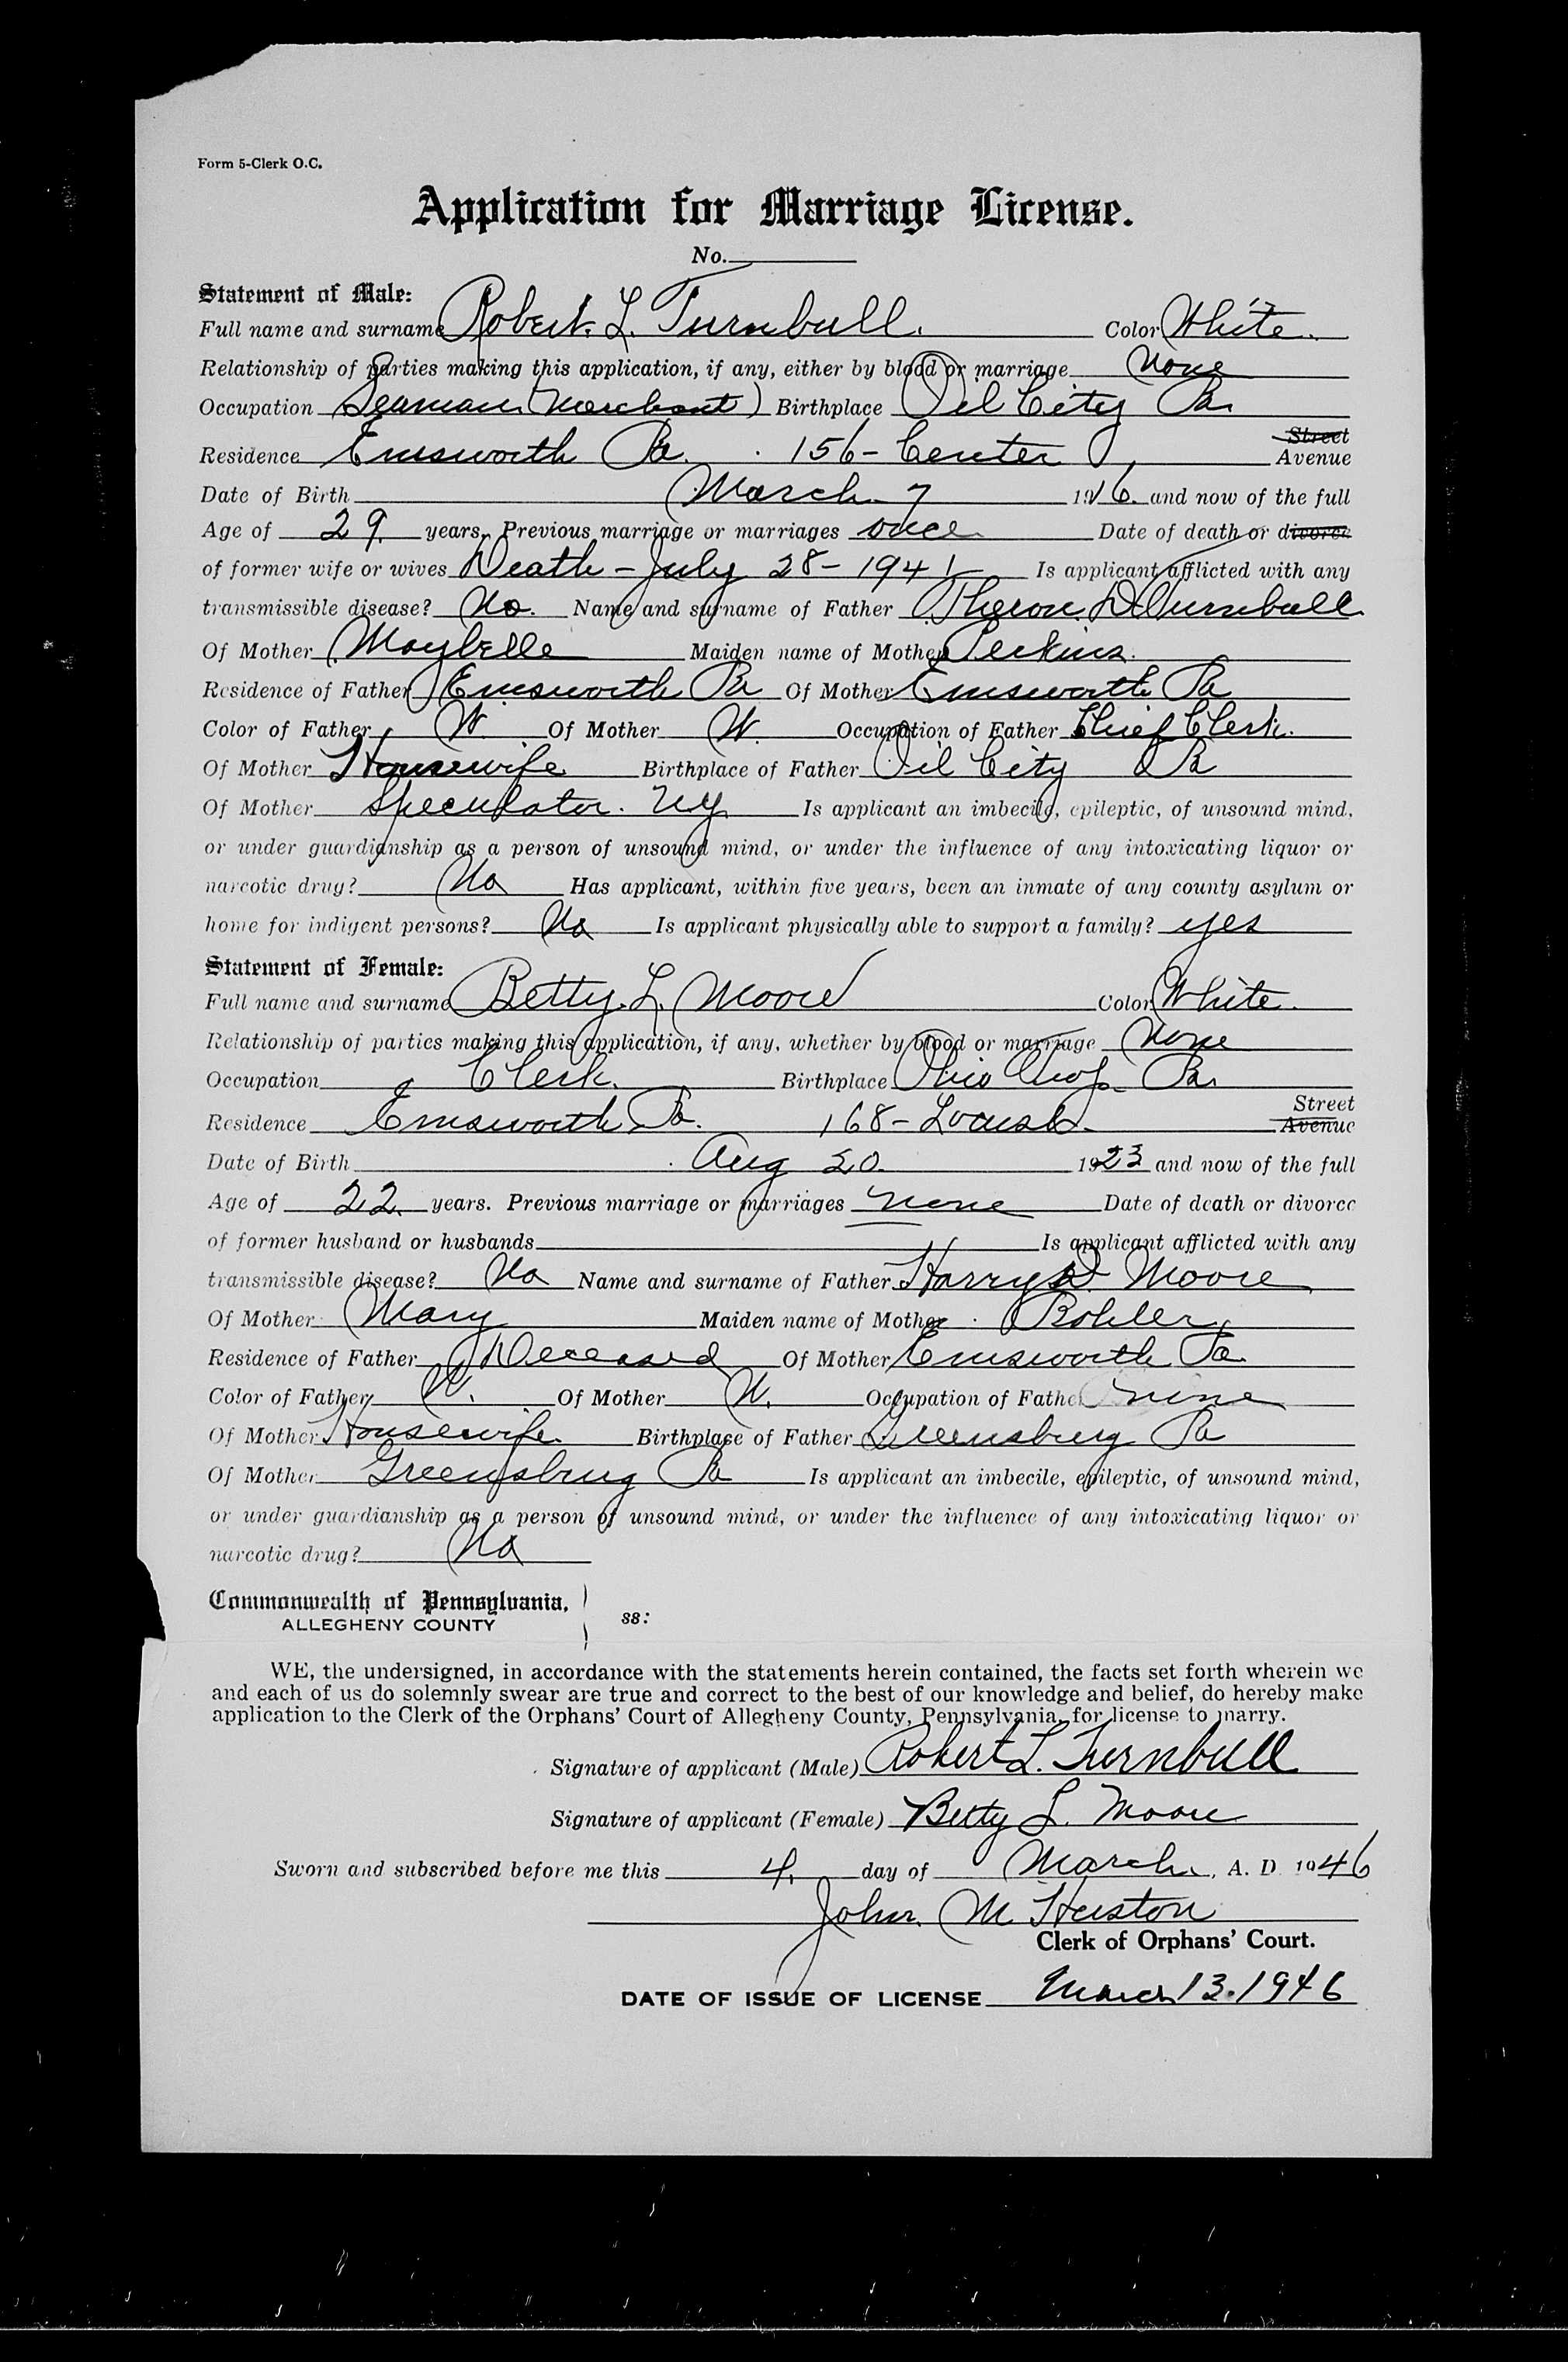 Form 5-Clerk O.C.
Application for Marriage License.
No.
Statement of Male:
Full name and surname Robert L. Turnbull. Color White.
Relationship of parties making this application, if any, either by blood or marriage None
Occupation Seaman (Merchant) Birthplace Oil City Pa.
Street
Residence Emsworth Pa. 156- Center Avenue
Date of Birth March 7 1916. and now of the full
Age of 29. years. Previous marriage or marriages once Date of death or divorce
of former wife or wives Death - July 28 - 1941 Is applicant afflicted with any
transmissible disease? No. Name and surname of Father Theron D Turnbull
Of Mother Maybelle Maiden name of Mother Perkins.
Residence of Father Emsworth Pa Of Mother Emsworth Pa
Color of Father W. Of Mother W. Occupation of Father Chief Clerk.
Of Mother Housewife Birthplace of Father Oil City Pa
Of Mother Speculator. NY Is applicant an imbecile, epileptic, of unsound mind,
or under guardianship as a person of unsound mind, or under the influence of any intoxicating liquor or
narcotic drug? No Has applicant, within five years, been an inmate of any county asylum or
home for indigent persons? No Is applicant physically able to support a family? yes
Statement of Female:
Full name and surname Betty L. Moore Color White.
Relationship of parties making this application, if any, whether by blood or marriage None
Occupation Clerk. Birthplace Ohio Twp. Pa.
Street
Residence Emsworth Pa. 168- Locust. Avenue
Date of Birth Aug 20. 1923 and now of the full
Age of 22. years. Previous marriage or marriages none Date of death or divorce
of former husband or husbands Is applicant afflicted with any
transmissible disease? No Name and surname of Father Harry D Moore
Of Mother Mary Maiden name of Mother Bohler
Residence of Father Deceased Of Mother Emsworth Pa
Color of Father W. Of Mother W. Occupation of Father none
Of Mother Housewife. Birthplace of Father Greensburg Pa
Of Mother Greensburg Pa Is applicant an imbecile, epileptic, of unsound mind,
or under guardianship as a person of unsound mind, or under the influence of any intoxicating liquor or
narcotic drug? No
Commonwealth of Pennsylvania,
ALLEGHENY COUNTY ss:
WE, the undersigned, in accordance with the statements herein contained, the facts set forth wherein we
and each of us do solemnly swear are true and correct to the best of our knowledge and belief, do hereby make
application to the Clerk of the Orphans' Court of Allegheny County, Pennsylvania, for license to marry.
Signature of applicant (Male) Robert L. Turnbull
Signature of applicant (Female) Betty L. Moore
Sworn and subscribed before me this 4. day of March, A. D. 1946
John. M Huston
Clerk of Orphans' Court.
DATE OF ISSUE OF LICENSE March 13. 1946